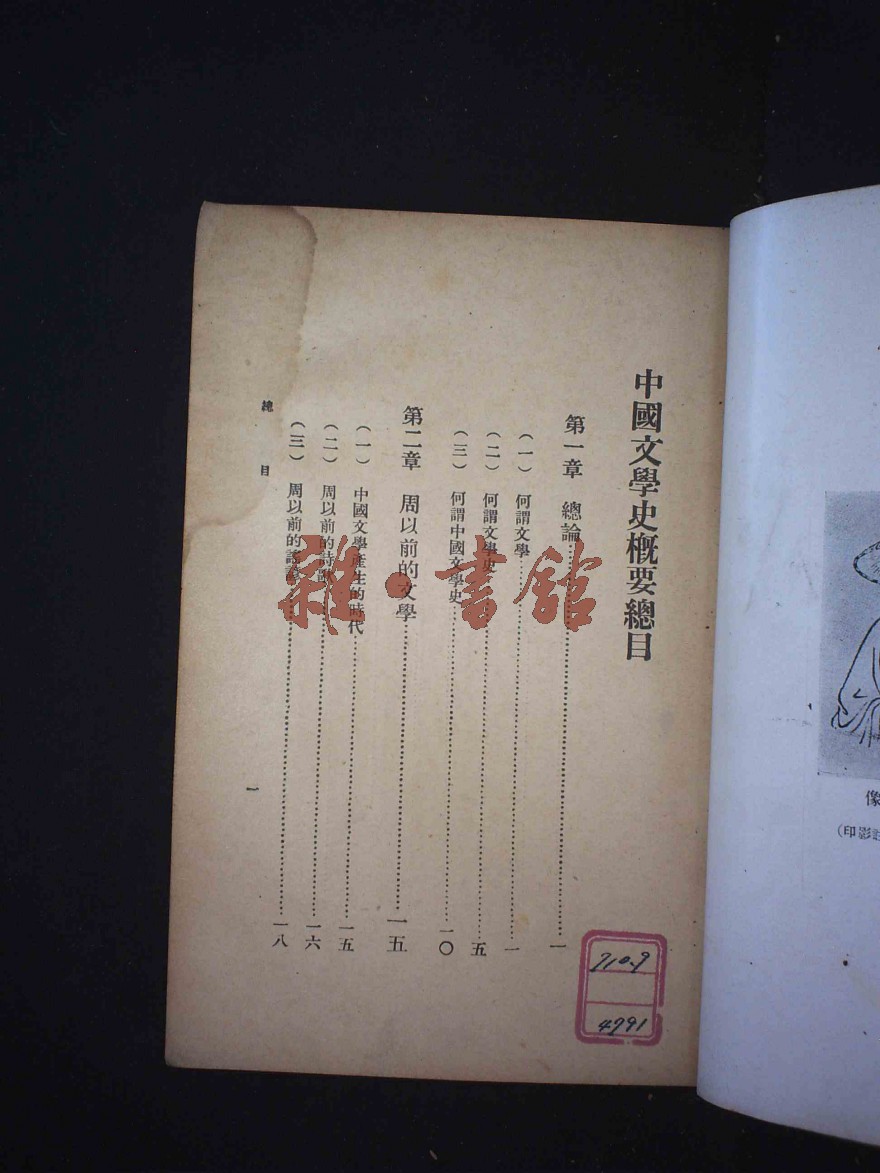 中國文學史概要總目
第一章 總論…………一
（一） 何謂文學…………一
（二） 何謂文學史…………五
（三） 何謂中國文學史…………一〇
第二章 周以前的文學…………一五
（一） 中國文學產生的時代…………一五
（二） 周以前的詩歌…………一六
（三） 周以前的謠諺…………一八
總目
一
雜·書館
910.9
4791
像